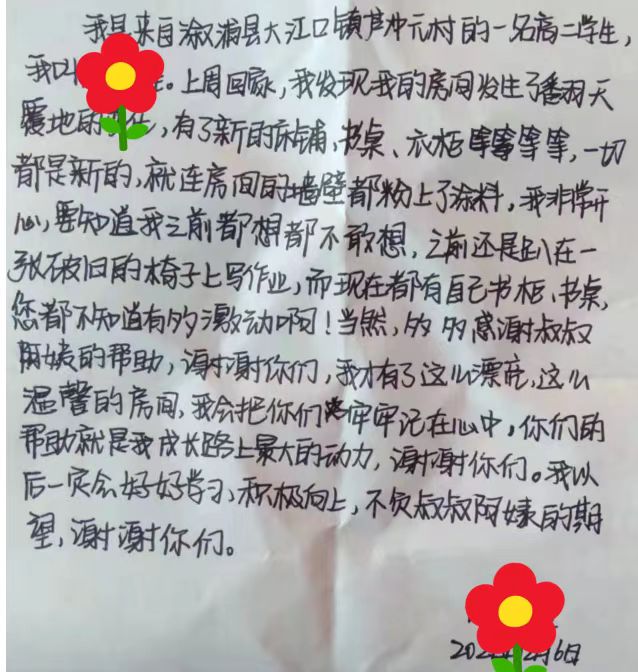 我是来自溆浦县大江口镇芦冲元村的一名高二学生，
我叫。上周回家，我发现我的房间发生了番羽天
覆地的变化，有了新的床铺、书桌、衣柜等等等等，一切
都是新的，就连房间的墙壁都粉上了涂料，我非常开
心，要知道我之前都想都不敢想，之前还是趴在一
张破旧的椅子上写作业，而现在都有自己书柜、书桌，
您都不知道有多激动啊！当然，多多感谢叔叔
阿姨的帮助，谢谢你们，我才有了这么漂亮，这么
温馨的房间，我会把你们牢牢记在心中，你们的
帮助就是我成长路上最大的动力，谢谢你们。我以
后一定会好好学习、积极向上，不负叔叔阿姨的期
望，谢谢你们。
202月6日